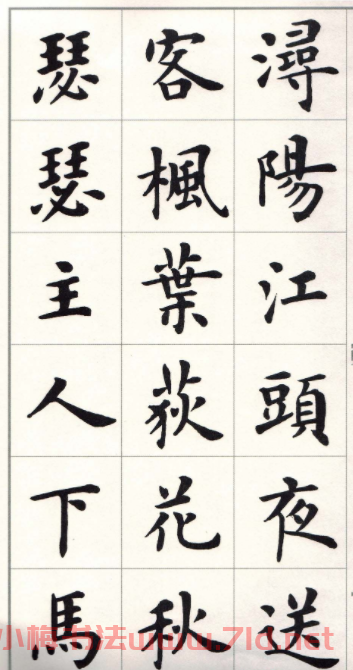 潯陽江頭夜送
客楓葉荻花秋
瑟瑟主人下馬
小梅书法www.7ld.net